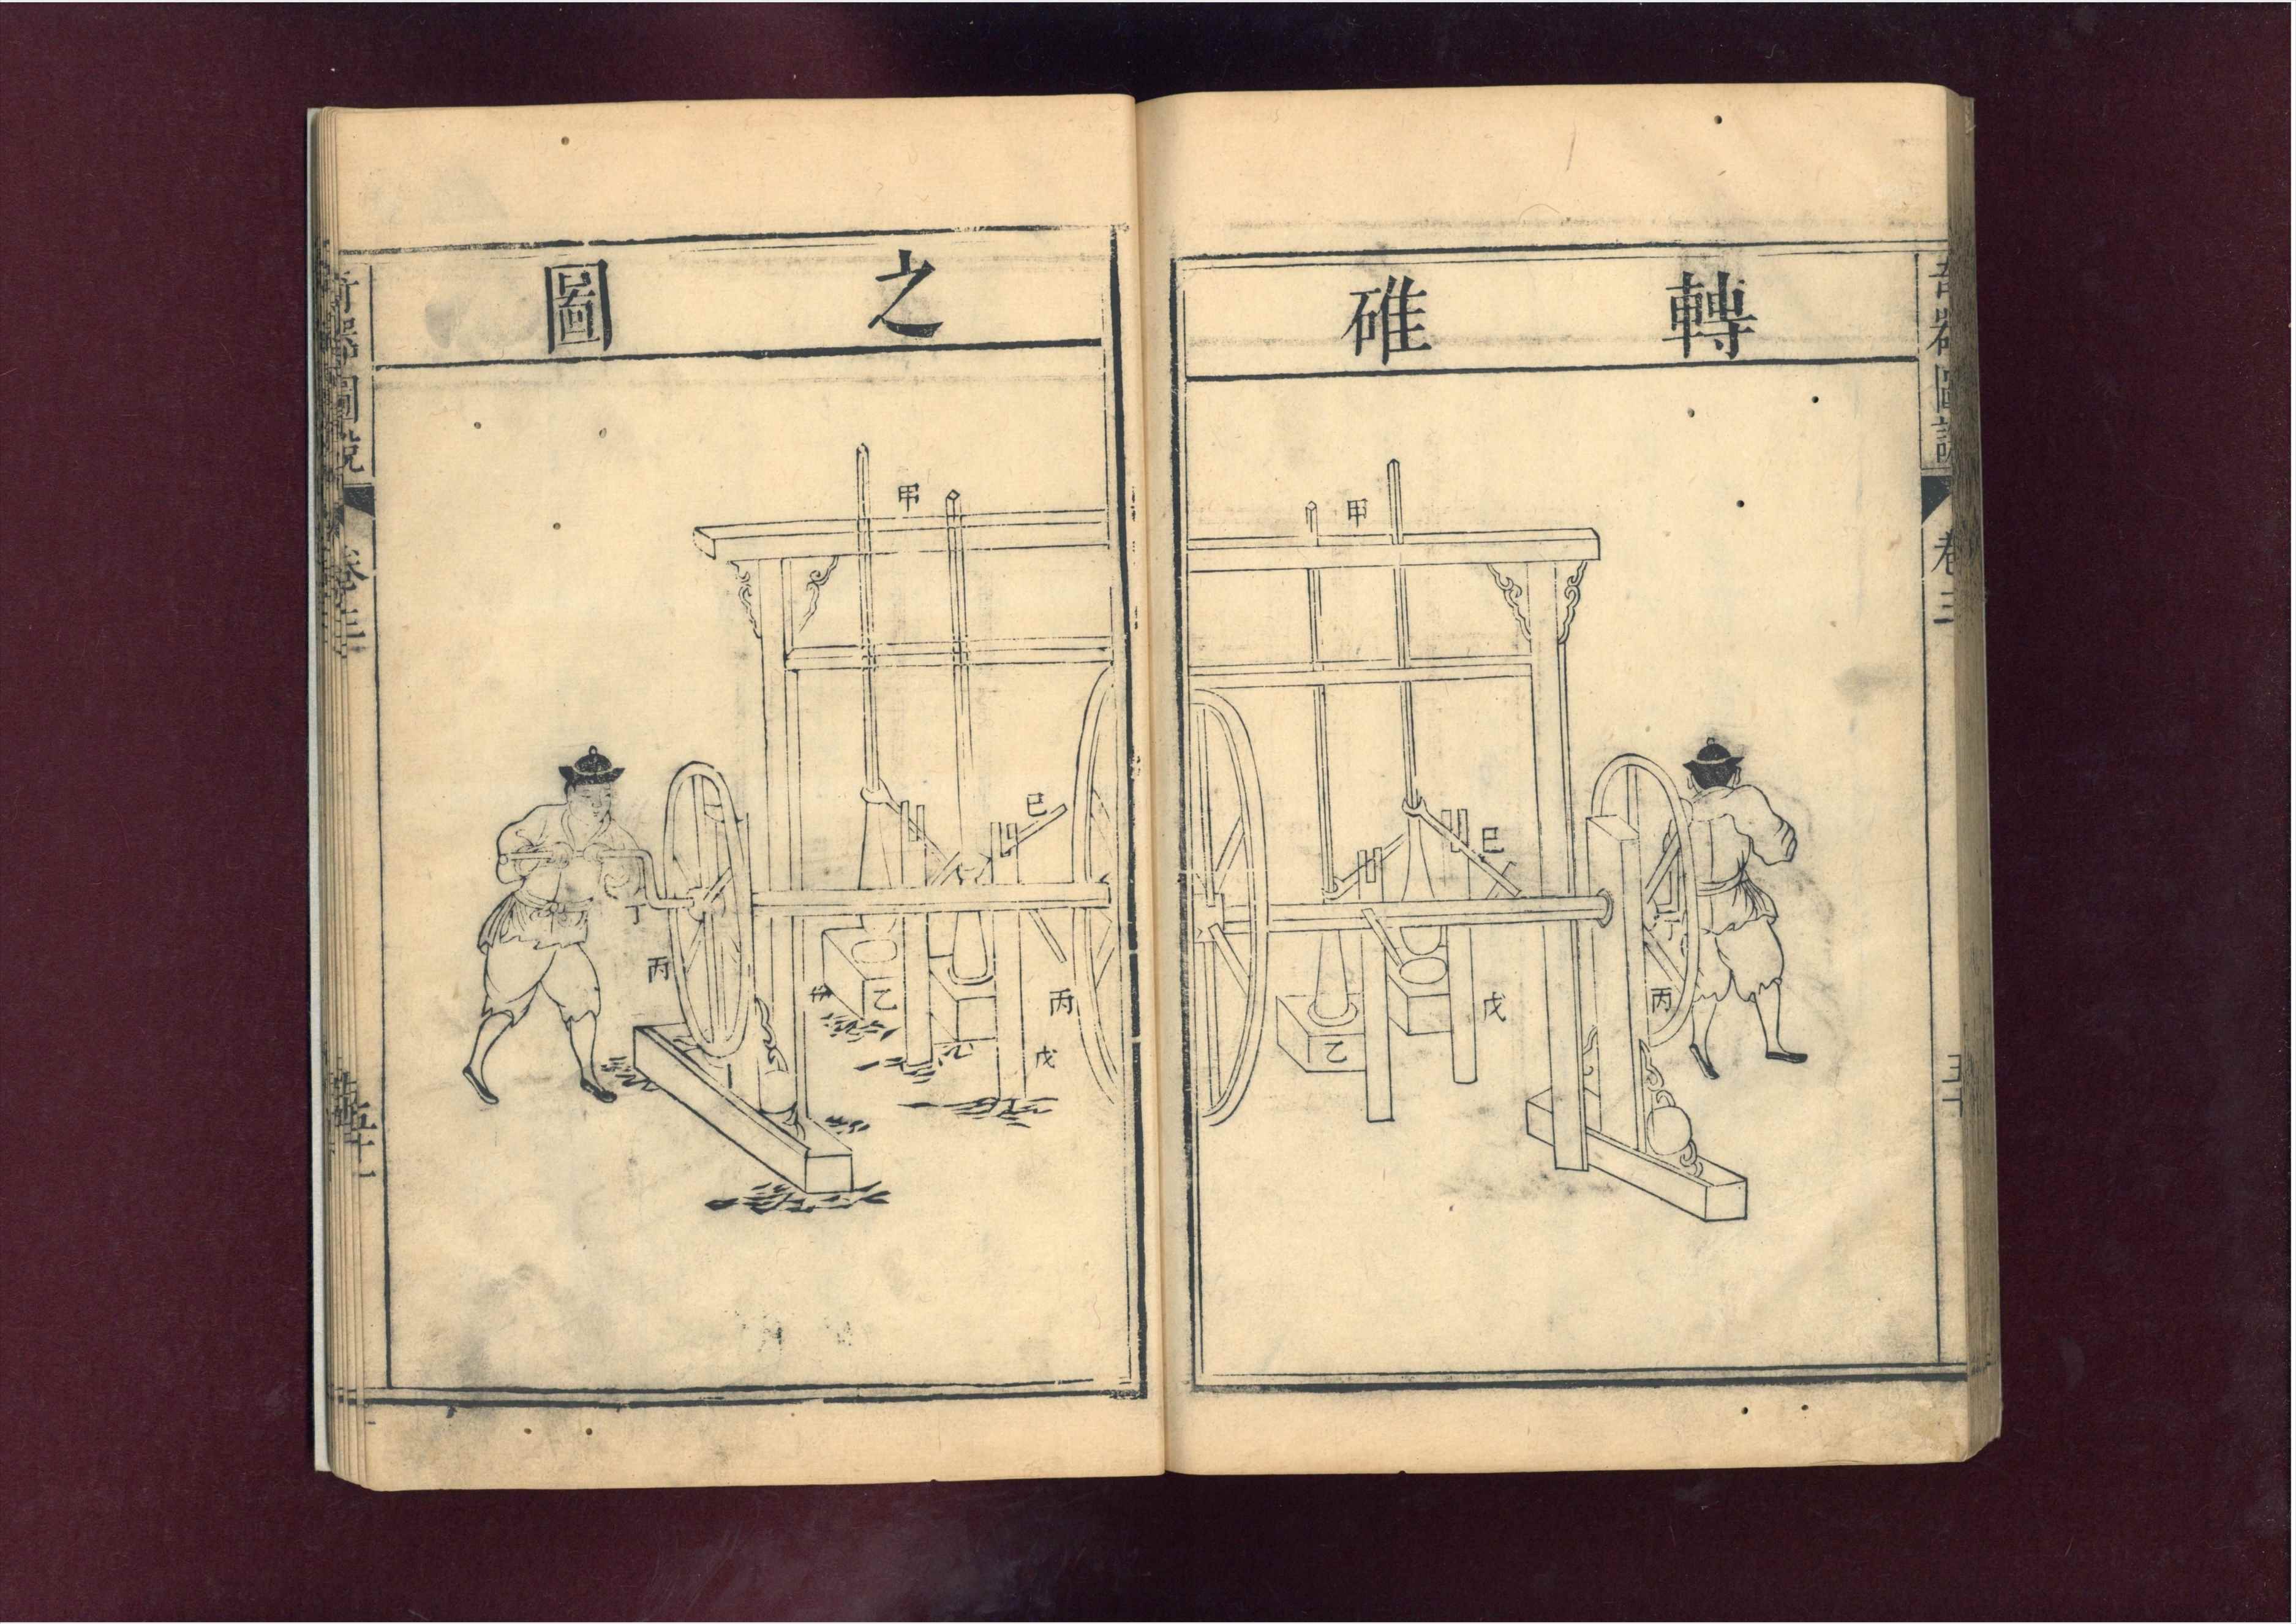 奇器圖說
卷三
轉碓
甲
甲
巳
巳
戊
丙
乙
之圖
丁
丙
乙
丙
戊
奇器圖說
卷三
五十一